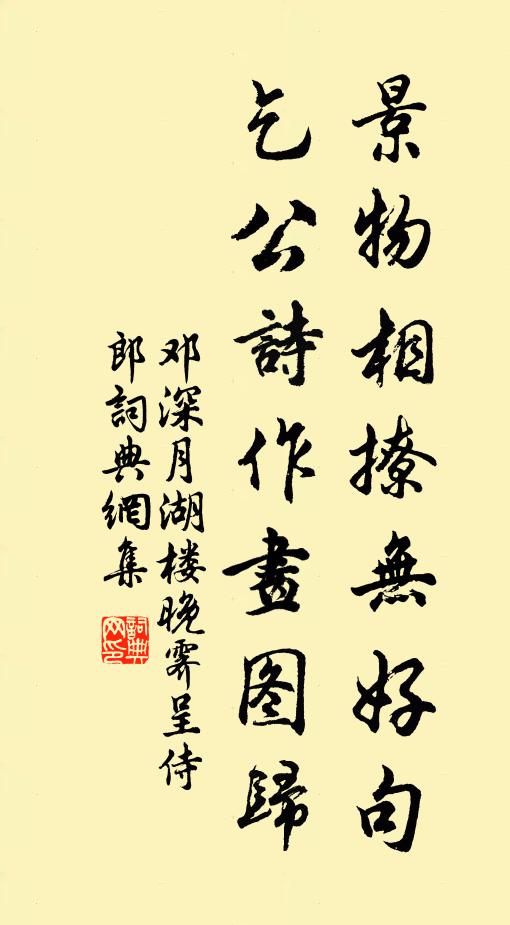 景物相撩無好句
乞公詩作畫图歸
邓深月湖楼晚霽呈侍
郎詞典網集
詞典
网印